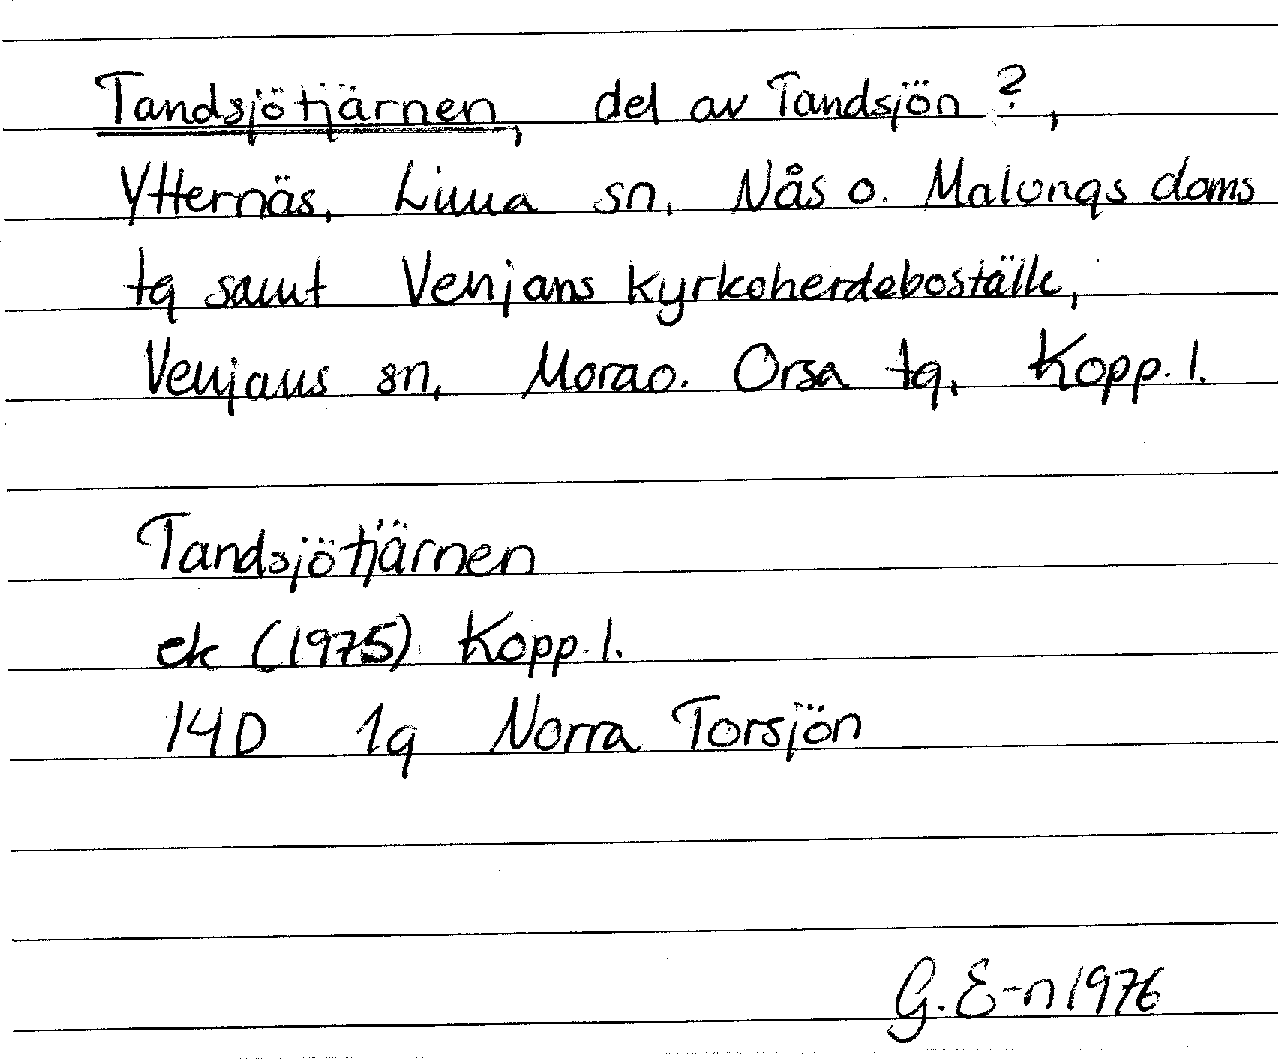 Tandsjötjärnen, del av Tandsjön ?,
Ytternäs, Lima sn, Nås o. Malungs doms
tg samt Venjans kyrkoherdeboställe,
Venjans sn, Mora o. Orsa tg, Kopp. l.
Tandsjötjärnen
ek (1975) Kopp. l.
14D 1g Norra Torsjön
G. E-n 1976